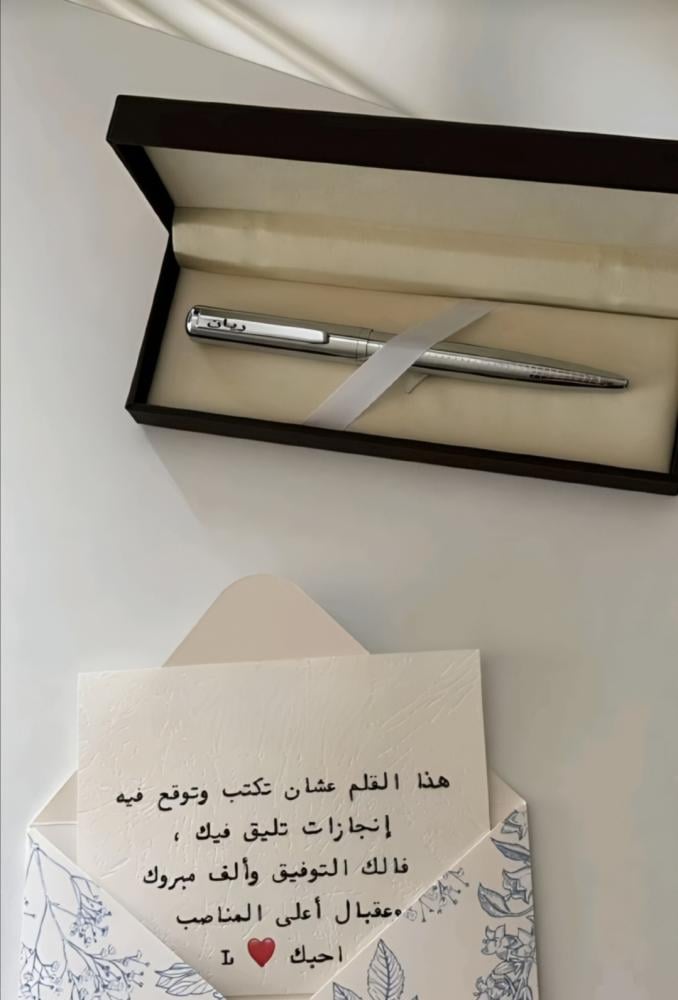 ريان
هذا القلم عشان تكتب وتوقع فيه
إنجازات تليق فيك ،
فالك التوفيق وألف مبروك
وعقبال أعلى المناصب
احبك ❤️ L